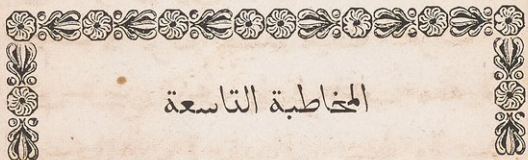 المخاطبة التاسعة